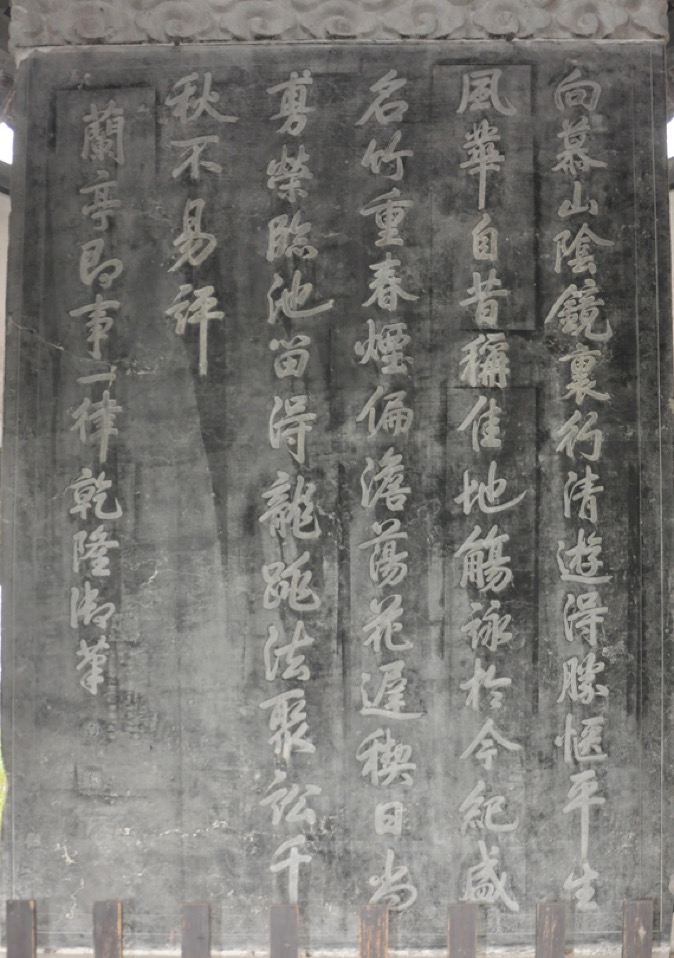 向慕山陰鏡裏行清遊得勝愜平生
風華自昔稱佳地觴詠於今紀盛
名竹重春煙偏澹蕩花遲禊日尚
勇榮臨池留得龍跳法聚訟千
秋不易評
蘭亭即事一律乾隆御筆